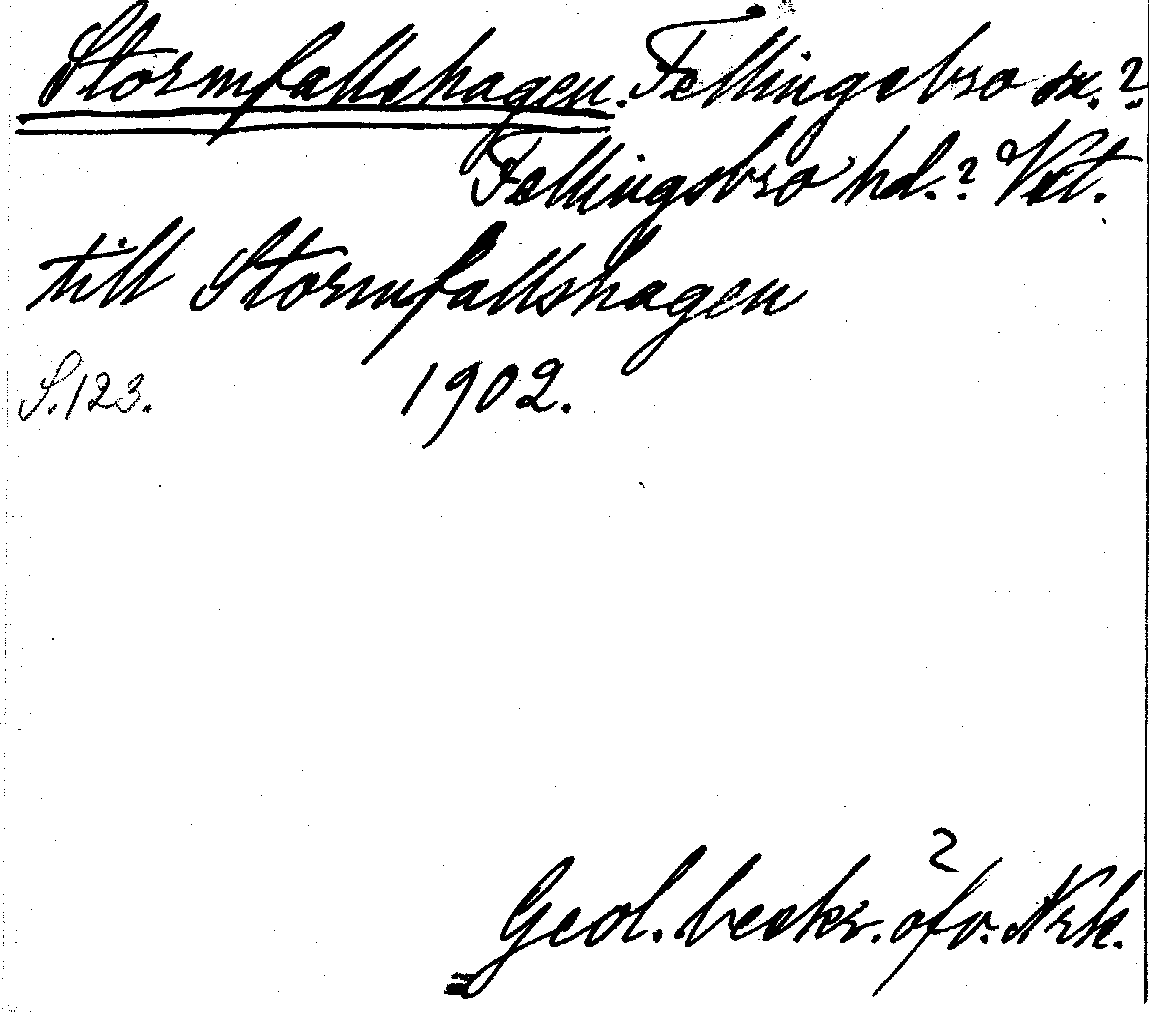 Stormfallshagen. Fellingsbro sn.?
Fellingsbro hd.? Vst.
till Stormfallshagen
S. 123. 1902.
Geol. beskr. öfv. Nrk.